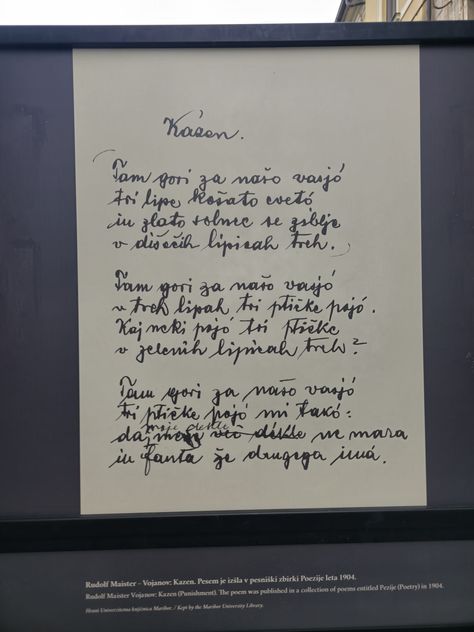 Kázen.
Tam gori za našo vasjó
tri lipe košato cvetó
in zlato solnce se ziblje
v dišečih lipicah treh.
Tam gori za našo vasjó
v treh lipah tri ptičke pojó.
Kaj neki pojó tri ptičke
v zelenih lipicah treh?
Tam gori za našo vasjó
tri ptičke pojó mi takó:
moje dekle
da več dékle ne mara
in fanta že drugega imá.
Rudolf Maister - Vojanov: Kazen. Pesem je izšla v pesniški zbirki Poezije leta 1904.
Rudolf Maister Vojanov: Kazen (Punishment). The poem was published in a collection of poems entitled Pezije (Poetry) in 1904.
Hrani Univerzitetna knjižnica Maribor. / Kept by the Maribor University Library.